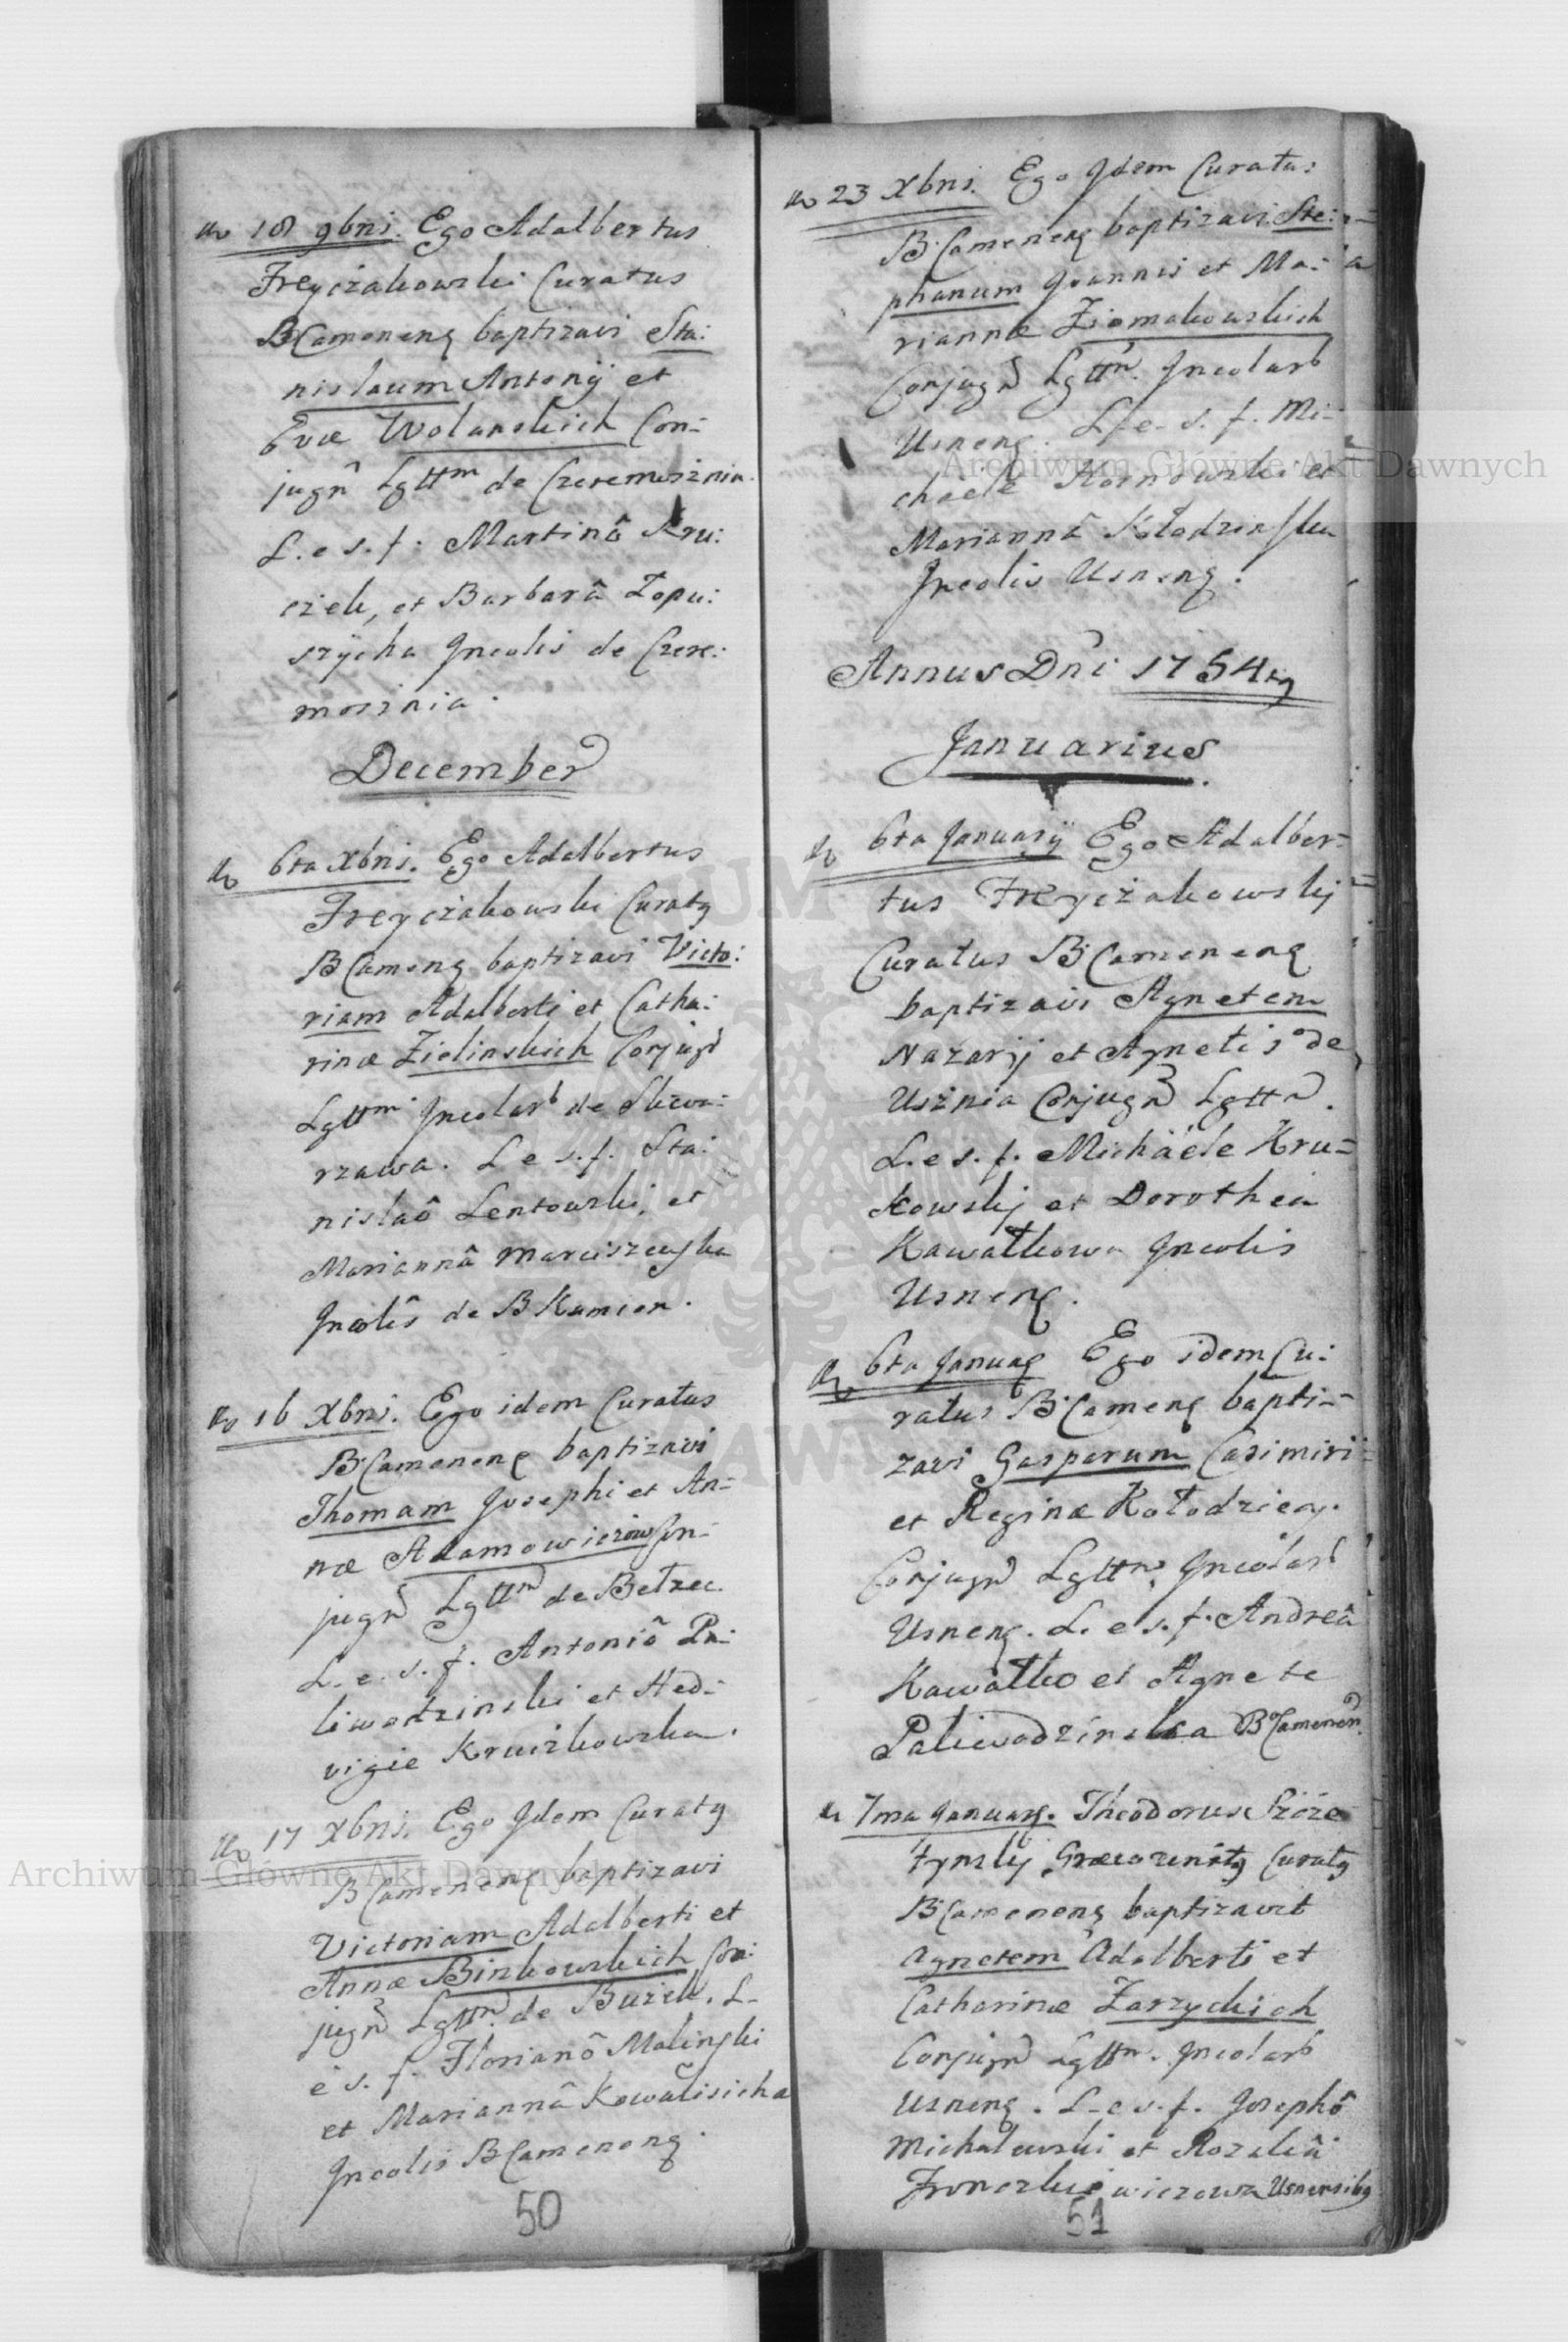 18 9bris. Ego Adalbertus
Freyczakowski Curatus
BCamenens baptizavi Sta:
nislaum Antonij et
Evæ Wolanskich Con:
jugũ Lgttm de Czeremosznia
L. e s. f. Martinô Kru:
czek, et Barbarâ Łopu:
szycha Incolis de Czere:
mosznia.
December
6ta Xbris. Ego Adalbertus
Freyczakowski Curatq
BCamenq baptizavi Victo:
riam Adalberti et Catha:
rinæ Zielinskich Conjugũ
Lgttm. Incolarb de Skwa:
rzawa. L e s. f. Sta:
nislaô Lentowski, et
Mariannâ Marciszewska
Incolis de B Kamien.
16 Xbris. Ego idem Curatus
BCamenenq baptizavi
Thomam Josephi et An=
næ Adamowiczow Con=
jugũ Lgttm de Bełzec
L. e. s. f. Antoniô Pa:
liwodzinski et Hed:
vigie Kruczkowska.
17 Xbris. Ego Idem Curatq
BCamenenq baptizavi
Victoriam Adalberti et
Annæ Binkowskich Con:
jugũ Lgttm. de Buzek. L.
e s. f. Florianô Malinski
et Mariannâ Kowalisicha
Incolis BCamenenq.
50
23 Xbris. Ego Idem Curatus
B Camenenq baptizavi Ste:
phanum Joannis et Ma:
riannæ Ziomakowskich
Conjugũ Lgttm. Incolarb
Usnenq. L. e. s. f. Mi:
chaele Kornowski et
Mariannâ Kołodzinska
Incolis Usnenq.
Annus Dni 1754
Januarius
6ta Januarij Ego Adalber=
tus Freyczakowskij
Curatus B Camenenq
baptizavi Agnetem
Nazarij et Agnetis de
Usznia Conjugũ Lgttm.
L. e s. f. Michaële Kru=
kowskij et Dorothea
Kawałkowa Incolis
Usnenq.
6ta Januarq Ego idem Cu:
ratus B Camenq bapti=
zavi Gasparum Casimiri
et Reginæ Kołodziey.
Conjugũ Lgttm. Incolarũ
Usnenq. L. e s. f. Andreâ
Kawałko et Agnete
Paliwodzinska BCamenen.
7ma Januarq. Theodorus
tynskij Græco unitq Curatq
BCamenenq baptizavit
Agnetem Adalberti et
Catharinæ Zarzyckich
Conjugũ Lgttm. Incolarb
Usnenq. L. e s. f. Josephô
Michalewski et Rozaliâ
Usnensibq
51
Archiwum Główne Akt Dawnych
Archiwum Główne Akt Dawnych